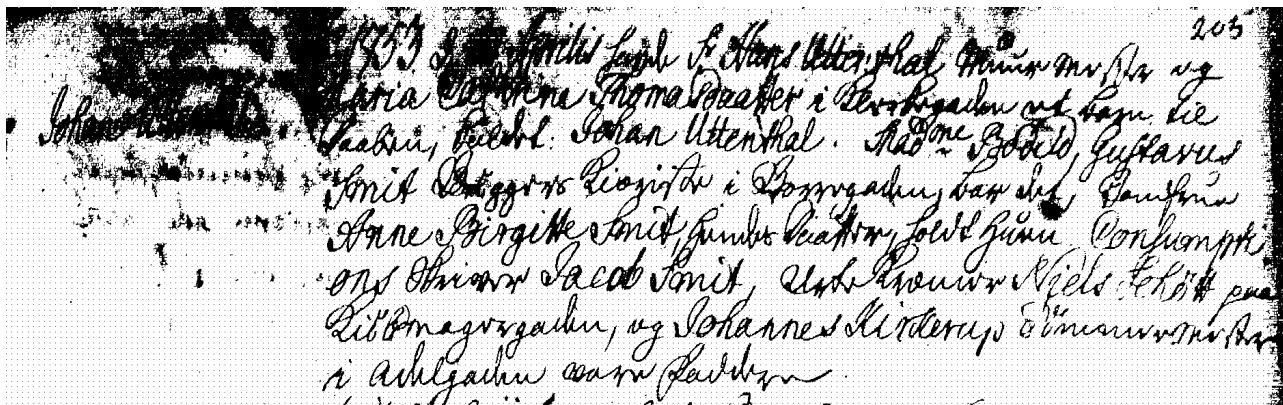 205
1753 d. Aprilis hafde Sr Hans Uttenthal Muurmester og
Maria Thomædaatter i Borregaden et barn til
Daaben, kaldet: Johan Uttenthal. Madme Bodild, Gustavus
Johan
Smit Bryggers Kiæreste i Borregaden, bar det, Jomfrue
Anne Birgitte Smit, hendes Daatter, holdt Huen, Consumpti
ons Skriver Jacob Smit, Urtekræmer Niels Schøtt paa
Kiødmagergaden, og Johannes Kirkerup Tømmermester
i Adelgaden vare Faddere